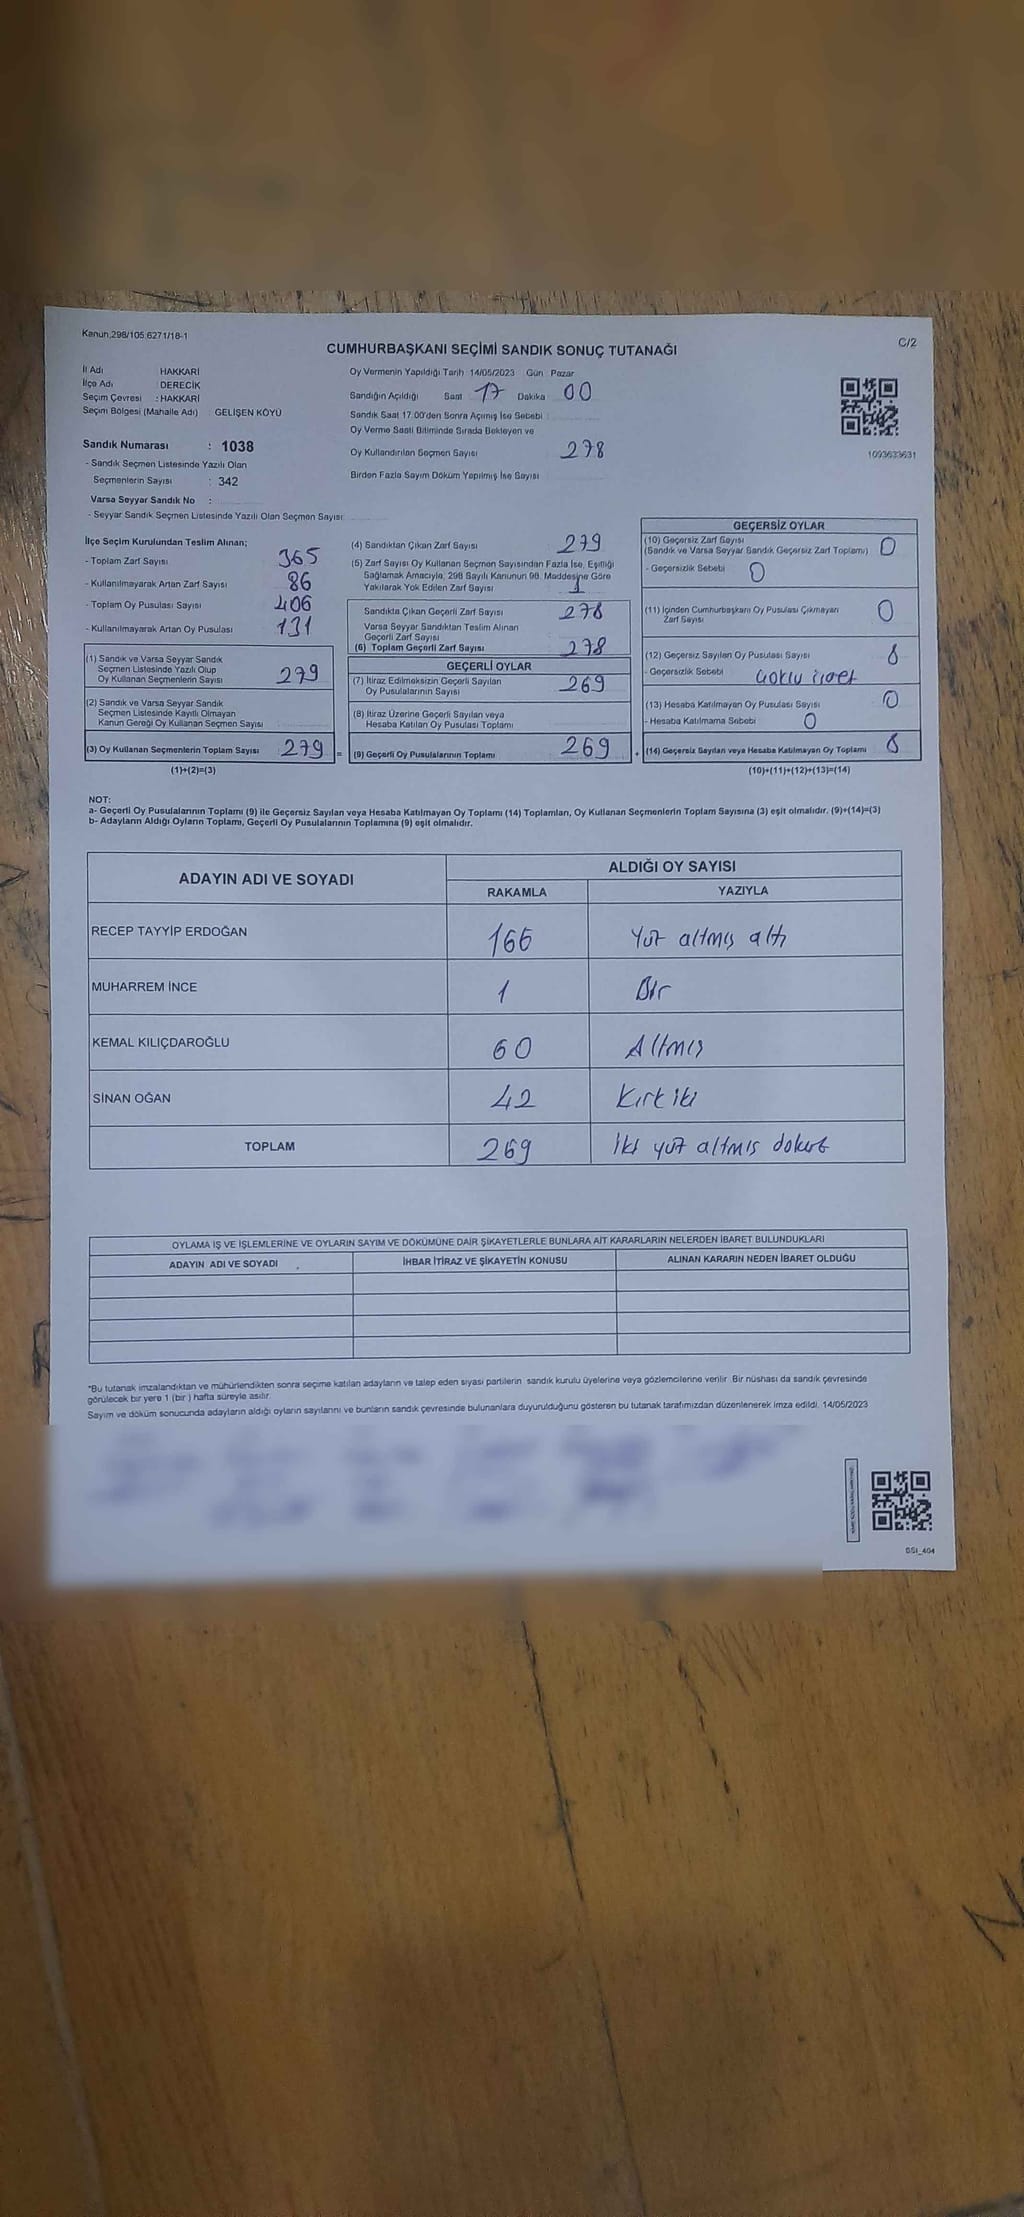 Kanun:298/105.6271/18-1
C/2
CUMHURBAŞKANI SEÇİMİ SANDIK SONUÇ TUTANAĞI
İl Adı HAKKARİ
İlçe Adı : DERECİK
Seçim Çevresi : HAKKARİ
Seçim Bölgesi (Mahalle Adı) GELİŞEN KÖYÜ
Sandık Numarası : 1038
- Sandık Seçmen Listesinde Yazılı Olan
Seçmenlerin Sayısı : 342
Varsa Seyyar Sandık No :
- Seyyar Sandık Seçmen Listesinde Yazılı Olan Seçmen Sayısı:
Oy Vermenin Yapıldığı Tarih 14/05/2023 Gün Pazar
Sandığın Açıldığı Saat 17 Dakika 00
Sandık Saat 17.00'den Sonra Açılmış İse Sebebi
Oy Verme Saati Bitiminde Sırada Bekleyen ve
Oy Kullandırılan Seçmen Sayısı 278
Birden Fazla Sayım Döküm Yapılmış İse Sayısı
1093633631
İlçe Seçim Kurulundan Teslim Alınan;
- Toplam Zarf Sayısı 365
- Kullanılmayarak Artan Zarf Sayısı 86
- Toplam Oy Pusulası Sayısı 406
- Kullanılmayarak Artan Oy Pusulası 131
(1) Sandık ve Varsa Seyyar Sandık
Seçmen Listesinde Yazılı Olup
Oy Kullanan Seçmenlerin Sayısı 279
(2) Sandık ve Varsa Seyyar Sandık
Seçmen Listesinde Kayıtlı Olmayan
Kanun Gereği Oy Kullanan Seçmen Sayısı
(3) Oy Kullanan Seçmenlerin Toplam Sayısı 279 =
(1)+(2)=(3)
(4) Sandıktan Çıkan Zarf Sayısı 279
(5) Zarf Sayısı Oy Kullanan Seçmen Sayısından Fazla İse, Eşitliği
Sağlamak Amacıyla, 298 Sayılı Kanunun 98. Maddesine Göre
Yakılarak Yok Edilen Zarf Sayısı 1
Sandıkta Çıkan Geçerli Zarf Sayısı 278
Varsa Seyyar Sandıktan Teslim Alınan
Geçerli Zarf Sayısı
(6) Toplam Geçerli Zarf Sayısı 278
GEÇERLİ OYLAR
(7) İtiraz Edilmeksizin Geçerli Sayılan
Oy Pusulalarının Sayısı 269
(8) İtiraz Üzerine Geçerli Sayılan veya
Hesaba Katılan Oy Pusulası Toplamı
(9) Geçerli Oy Pusulalarının Toplamı 269 +
GEÇERSİZ OYLAR
(10) Geçersiz Zarf Sayısı
(Sandık ve Varsa Seyyar Sandık Geçersiz Zarf Toplamı) 0
- Geçersizlik Sebebi 0
(11) İçinden Cumhurbaşkanı Oy Pusulası Çıkmayan
Zarf Sayısı 0
(12) Geçersiz Sayılan Oy Pusulası Sayısı 8
- Geçersizlik Sebebi
(13) Hesaba Katılmayan Oy Pusulası Sayısı 0
- Hesaba Katılmama Sebebi 0
(14) Geçersiz Sayılan veya Hesaba Katılmayan Oy Toplamı 8
(10)+(11)+(12)+(13)=(14)
NOT:
a- Geçerli Oy Pusulalarının Toplamı (9) ile Geçersiz Sayılan veya Hesaba Katılmayan Oy Toplamı (14) Toplamları, Oy Kullanan Seçmenlerin Toplam Sayısına (3) eşit olmalıdır. (9)+(14)=(3)
b- Adayların Aldığı Oyların Toplamı, Geçerli Oy Pusulalarının Toplamına (9) eşit olmalıdır.
ADAYIN ADI VE SOYADI
ALDIĞI OY SAYISI
RAKAMLA YAZIYLA
RECEP TAYYİP ERDOĞAN 166 Yüz altmış altı
MUHARREM İNCE 1 Bir
KEMAL KILIÇDAROĞLU 60 Altmış
SİNAN OĞAN 42 Kırk iki
TOPLAM 269 İki yüz altmış dokuz
OYLAMA İŞ VE İŞLEMLERİNE VE OYLARIN SAYIM VE DÖKÜMÜNE DAİR ŞİKAYETLERLE BUNLARA AİT KARARLARIN NELERDEN İBARET BULUNDUKLARI
ADAYIN ADI VE SOYADI İHBAR İTİRAZ VE ŞİKAYETİN KONUSU ALINAN KARARIN NEDEN İBARET OLDUĞU
*Bu tutanak imzalandıktan ve mühürlendikten sonra seçime katılan adayların ve talep eden siyasi partilerin sandık kurulu üyelerine veya gözlemcilerine verilir. Bir nüshası da sandık çevresinde
görülecek bir yere 1 (bir) hafta süreyle asılır.
Sayım ve döküm sonucunda adayların aldığı oyların sayılarını ve bunların sandık çevresinde bulunanlara duyurulduğunu gösteren bu tutanak tarafımızdan düzenlenerek imza edildi. 14/05/2023